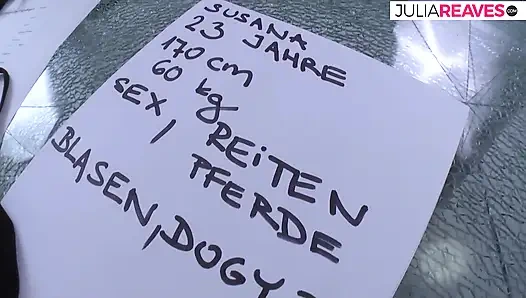 JULIAREAVES.COM
SUSANA
23 JAHRE
170 cm
60 kg
SEX, REiTEN
PFERDE
BLASEN, DOGY-